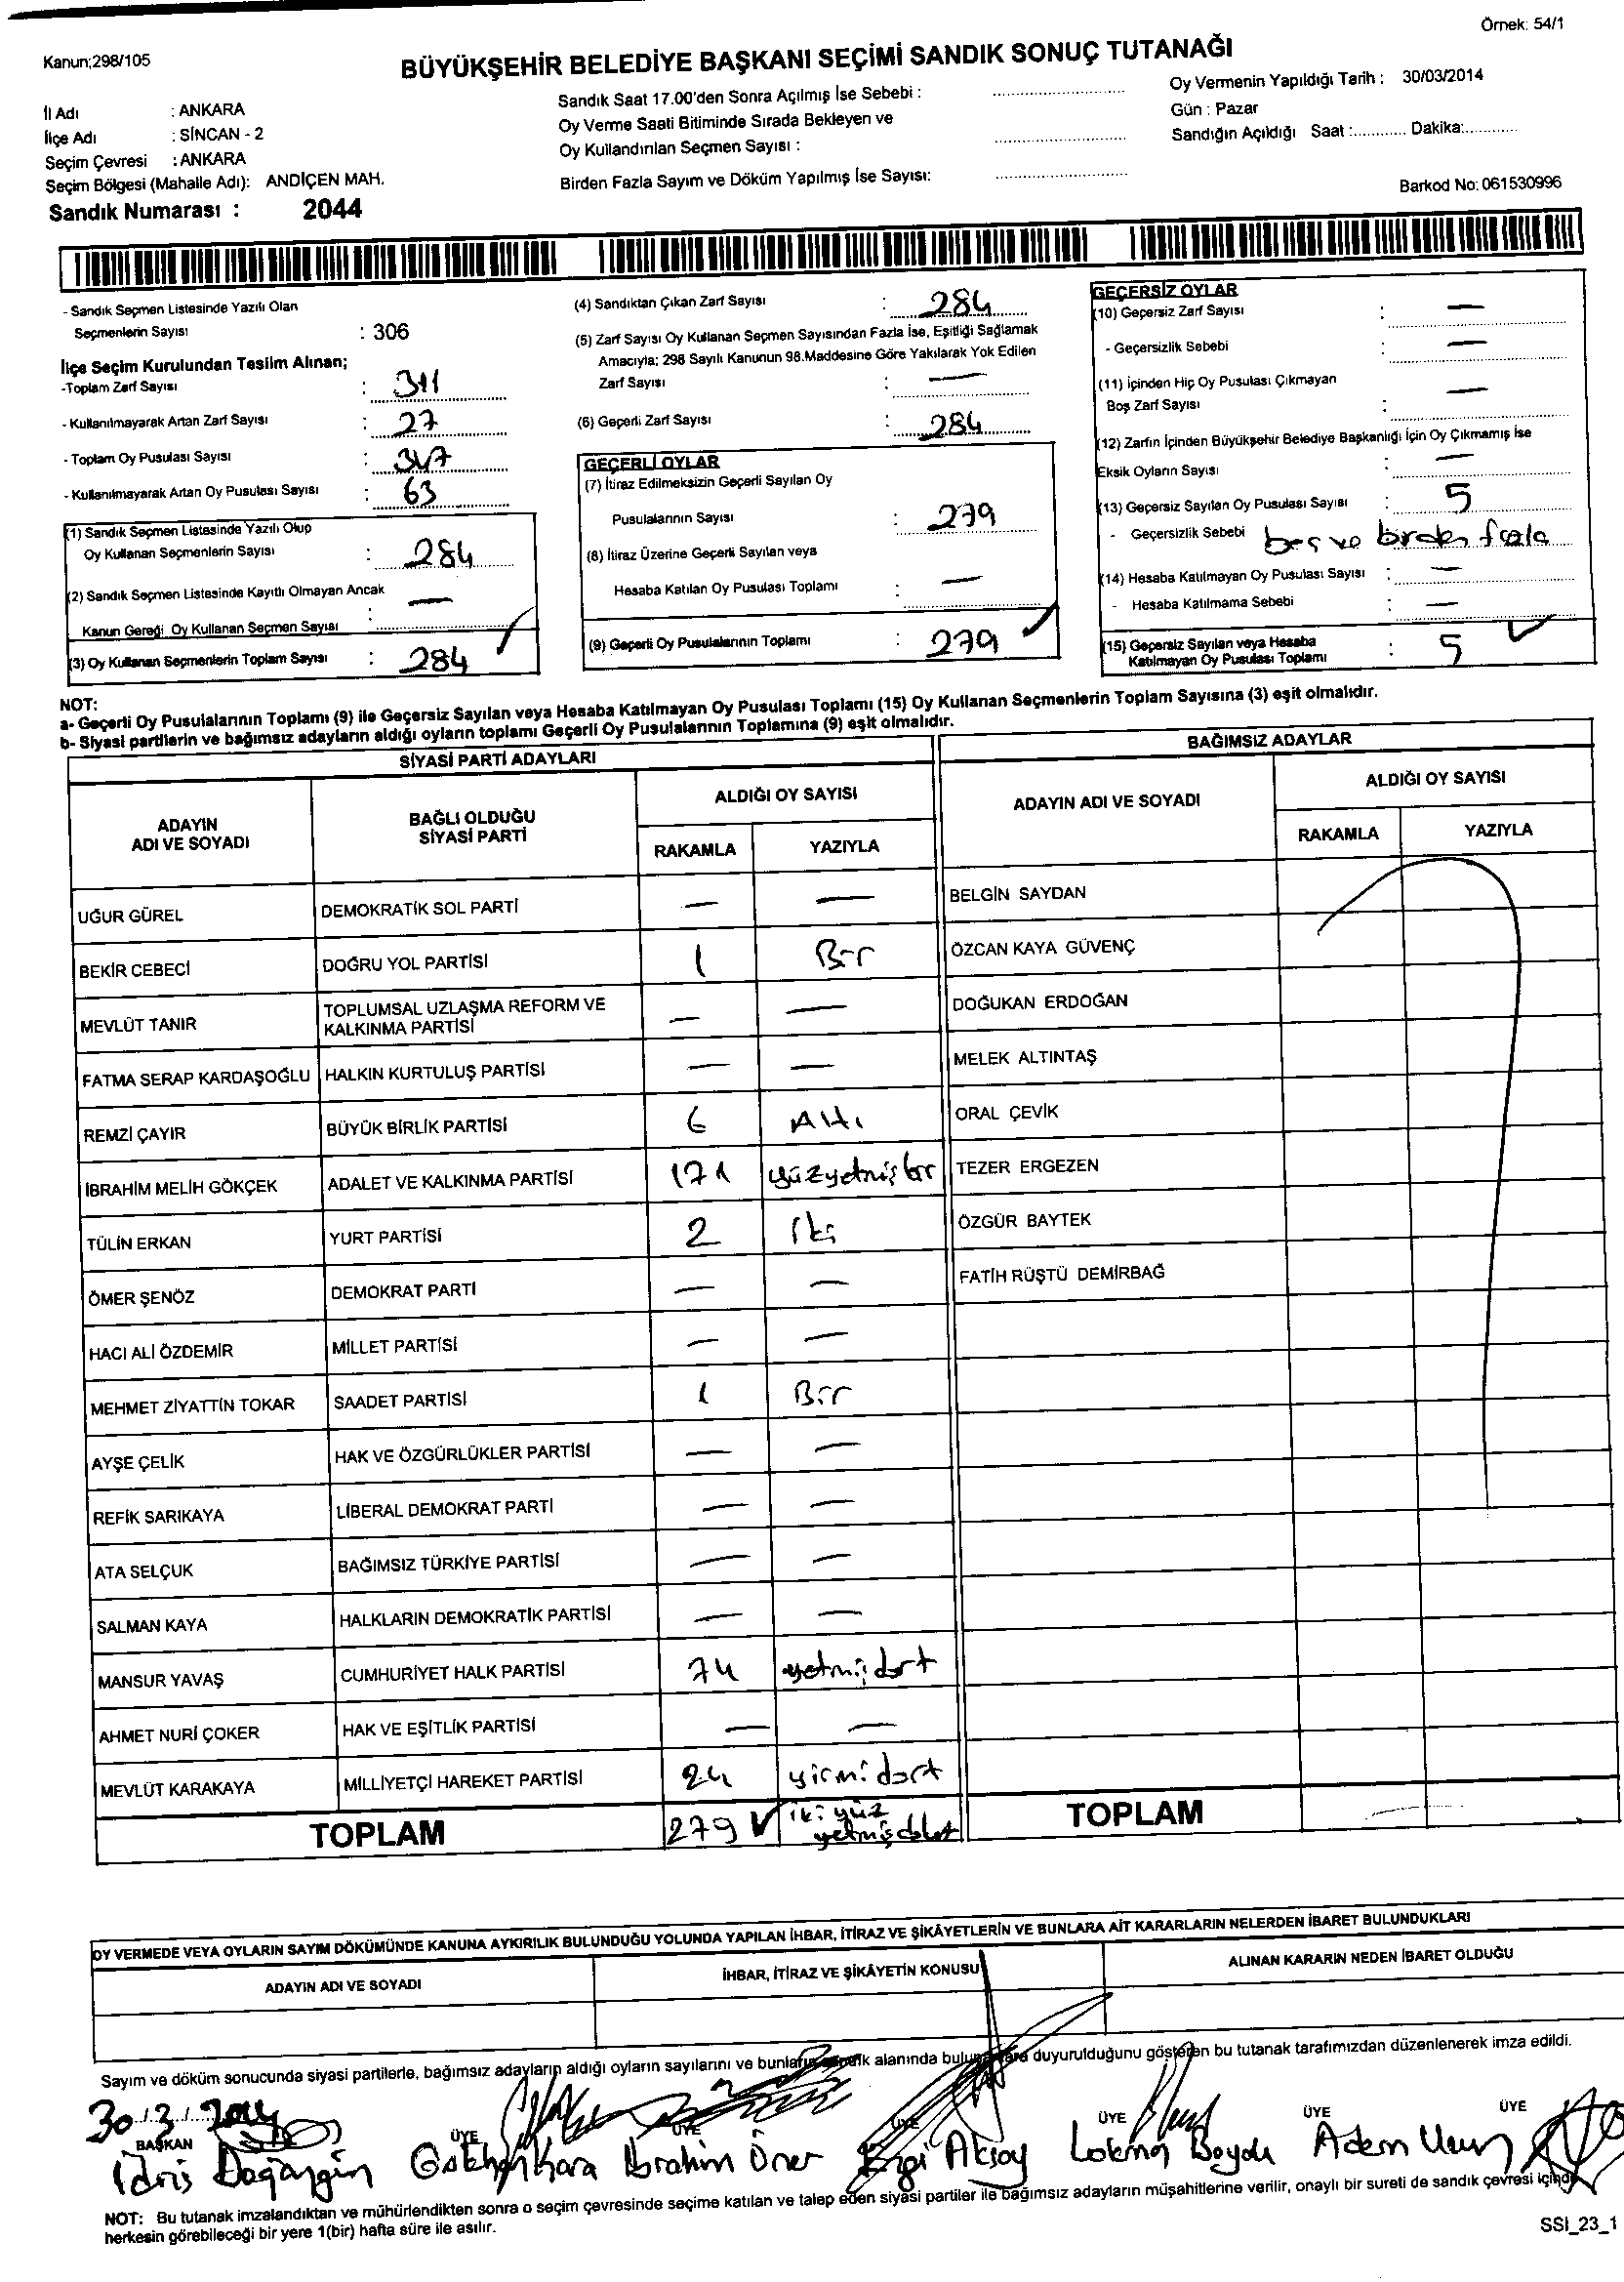 Örnek: 54/1
Kanun;298/105
BÜYÜKŞEHİR BELEDİYE BAŞKANI SEÇİMİ SANDIK SONUÇ TUTANAĞI
İl Adı : ANKARA
İlçe Adı : SİNCAN - 2
Seçim Çevresi : ANKARA
Seçim Bölgesi (Mahalle Adı): ANDİÇEN MAH.
Sandık Numarası : 2044
Sandık Saat 17.00'den Sonra Açılmış İse Sebebi :
Oy Verme Saati Bitiminde Sırada Bekleyen ve
Oy Kullandırılan Seçmen Sayısı :
Birden Fazla Sayım ve Döküm Yapılmış İse Sayısı:
Oy Vermenin Yapıldığı Tarih : 30/03/2014
Gün : Pazar
Sandığın Açıldığı Saat :............ Dakika:............
Barkod No: 061530996
- Sandık Seçmen Listesinde Yazılı Olan
Seçmenlerin Sayısı : 306
İlçe Seçim Kurulundan Teslim Alınan;
-Toplam Zarf Sayısı : 311
- Kullanılmayarak Artan Zarf Sayısı : 27
- Toplam Oy Pusulası Sayısı : 347
- Kullanılmayarak Artan Oy Pusulası Sayısı : 63
(1) Sandık Seçmen Listesinde Yazılı Olup
Oy Kullanan Seçmenlerin Sayısı : 284
(2) Sandık Seçmen Listesinde Kayıtlı Olmayan Ancak
Kanun Gereği Oy Kullanan Seçmen Sayısı : —
(3) Oy Kullanan Seçmenlerin Toplam Sayısı : 284
(4) Sandıktan Çıkan Zarf Sayısı : 284
(5) Zarf Sayısı Oy Kullanan Seçmen Sayısından Fazla İse, Eşitliği Sağlamak
Amacıyla; 298 Sayılı Kanunun 98.Maddesine Göre Yakılarak Yok Edilen
Zarf Sayısı : —
(6) Geçerli Zarf Sayısı : 284
GEÇERLİ OYLAR
(7) İtiraz Edilmeksizin Geçerli Sayılan Oy
Pusulalarının Sayısı : 279
(8) İtiraz Üzerine Geçerli Sayılan veya
Hesaba Katılan Oy Pusulası Toplamı : —
(9) Geçerli Oy Pusulalarının Toplamı : 279
GEÇERSİZ OYLAR
(10) Geçersiz Zarf Sayısı : —
- Geçersizlik Sebebi : —
(11) İçinden Hiç Oy Pusulası Çıkmayan
Boş Zarf Sayısı : —
(12) Zarfın İçinden Büyükşehir Belediye Başkanlığı İçin Oy Çıkmamış İse
Eksik Oyların Sayısı : —
(13) Geçersiz Sayılan Oy Pusulası Sayısı : 5
- Geçersizlik Sebebi boş ve birden fazla
(14) Hesaba Katılmayan Oy Pusulası Sayısı : —
- Hesaba Katılmama Sebebi : —
(15) Geçersiz Sayılan veya Hesaba
Katılmayan Oy Pusulası Toplamı : 5
NOT:
a- Geçerli Oy Pusulalarının Toplamı (9) ile Geçersiz Sayılan veya Hesaba Katılmayan Oy Pusulası Toplamı (15) Oy Kullanan Seçmenlerin Toplam Sayısına (3) eşit olmalıdır.
b- Siyasi partilerin ve bağımsız adayların aldığı oyların toplamı Geçerli Oy Pusulalarının Toplamına (9) eşit olmalıdır.
SİYASİ PARTİ ADAYLARI
ADAYIN ADI VE SOYADI
BAĞLI OLDUĞU SİYASİ PARTİ
ALDIĞI OY SAYISI
RAKAMLA YAZIYLA
UĞUR GÜREL DEMOKRATİK SOL PARTİ — —
BEKİR CEBECİ DOĞRU YOL PARTİSİ 1 Bir
MEVLÜT TANIR TOPLUMSAL UZLAŞMA REFORM VE KALKINMA PARTİSİ — —
FATMA SERAP KARDAŞOĞLU HALKIN KURTULUŞ PARTİSİ — —
REMZİ ÇAYIR BÜYÜK BİRLİK PARTİSİ 6 Altı
İBRAHİM MELİH GÖKÇEK ADALET VE KALKINMA PARTİSİ 171 yüzyetmişbir
TÜLİN ERKAN YURT PARTİSİ 2 İki
ÖMER ŞENÖZ DEMOKRAT PARTİ — —
HACI ALİ ÖZDEMİR MİLLET PARTİSİ — —
MEHMET ZİYATTİN TOKAR SAADET PARTİSİ 1 Bir
AYŞE ÇELİK HAK VE ÖZGÜRLÜKLER PARTİSİ — —
REFİK SARIKAYA LİBERAL DEMOKRAT PARTİ — —
ATA SELÇUK BAĞIMSIZ TÜRKİYE PARTİSİ — —
SALMAN KAYA HALKLARIN DEMOKRATİK PARTİSİ — —
MANSUR YAVAŞ CUMHURİYET HALK PARTİSİ 74 yetmişdört
AHMET NURİ ÇOKER HAK VE EŞİTLİK PARTİSİ — —
MEVLÜT KARAKAYA MİLLİYETÇİ HAREKET PARTİSİ 24 yirmidört
TOPLAM 279 ikiyüz
BAĞIMSIZ ADAYLAR
ADAYIN ADI VE SOYADI
ALDIĞI OY SAYISI
RAKAMLA YAZIYLA
BELGİN SAYDAN
ÖZCAN KAYA GÜVENÇ
DOĞUKAN ERDOĞAN
MELEK ALTINTAŞ
ORAL ÇEVİK
TEZER ERGEZEN
ÖZGÜR BAYTEK
FATİH RÜŞTÜ DEMİRBAĞ
TOPLAM
OY VERMEDE VEYA OYLARIN SAYIM DÖKÜMÜNDE KANUNA AYKIRILIK BULUNDUĞU YOLUNDA YAPILAN İHBAR, İTİRAZ VE ŞİKÂYETLERİN VE BUNLARA AİT KARARLARIN NELERDEN İBARET BULUNDUKLARI
ADAYIN ADI VE SOYADI İHBAR, İTİRAZ VE ŞİKÂYETİN KONUSU ALINAN KARARIN NEDEN İBARET OLDUĞU
Sayım ve döküm sonucunda siyasi partilerle, bağımsız adayların aldığı oyların sayılarını ve bunların alanında duyurulduğunu gösteren bu tutanak tarafımızdan düzenlenerek imza edildi.
30/3/2014
BAŞKAN ÜYE ÜYE ÜYE ÜYE ÜYE ÜYE
İdris Gökhan Kara İbrahim Öner Ezgi Aksoy Adem
NOT: Bu tutanak imzalandıktan ve mühürlendikten sonra o seçim çevresinde seçime katılan ve talep eden siyasi partiler ile bağımsız adayların müşahitlerine verilir, onaylı bir sureti de sandık çevresi içinde
herkesin görebileceği bir yere 1(bir) hafta süre ile asılır.
SSİ_23_1